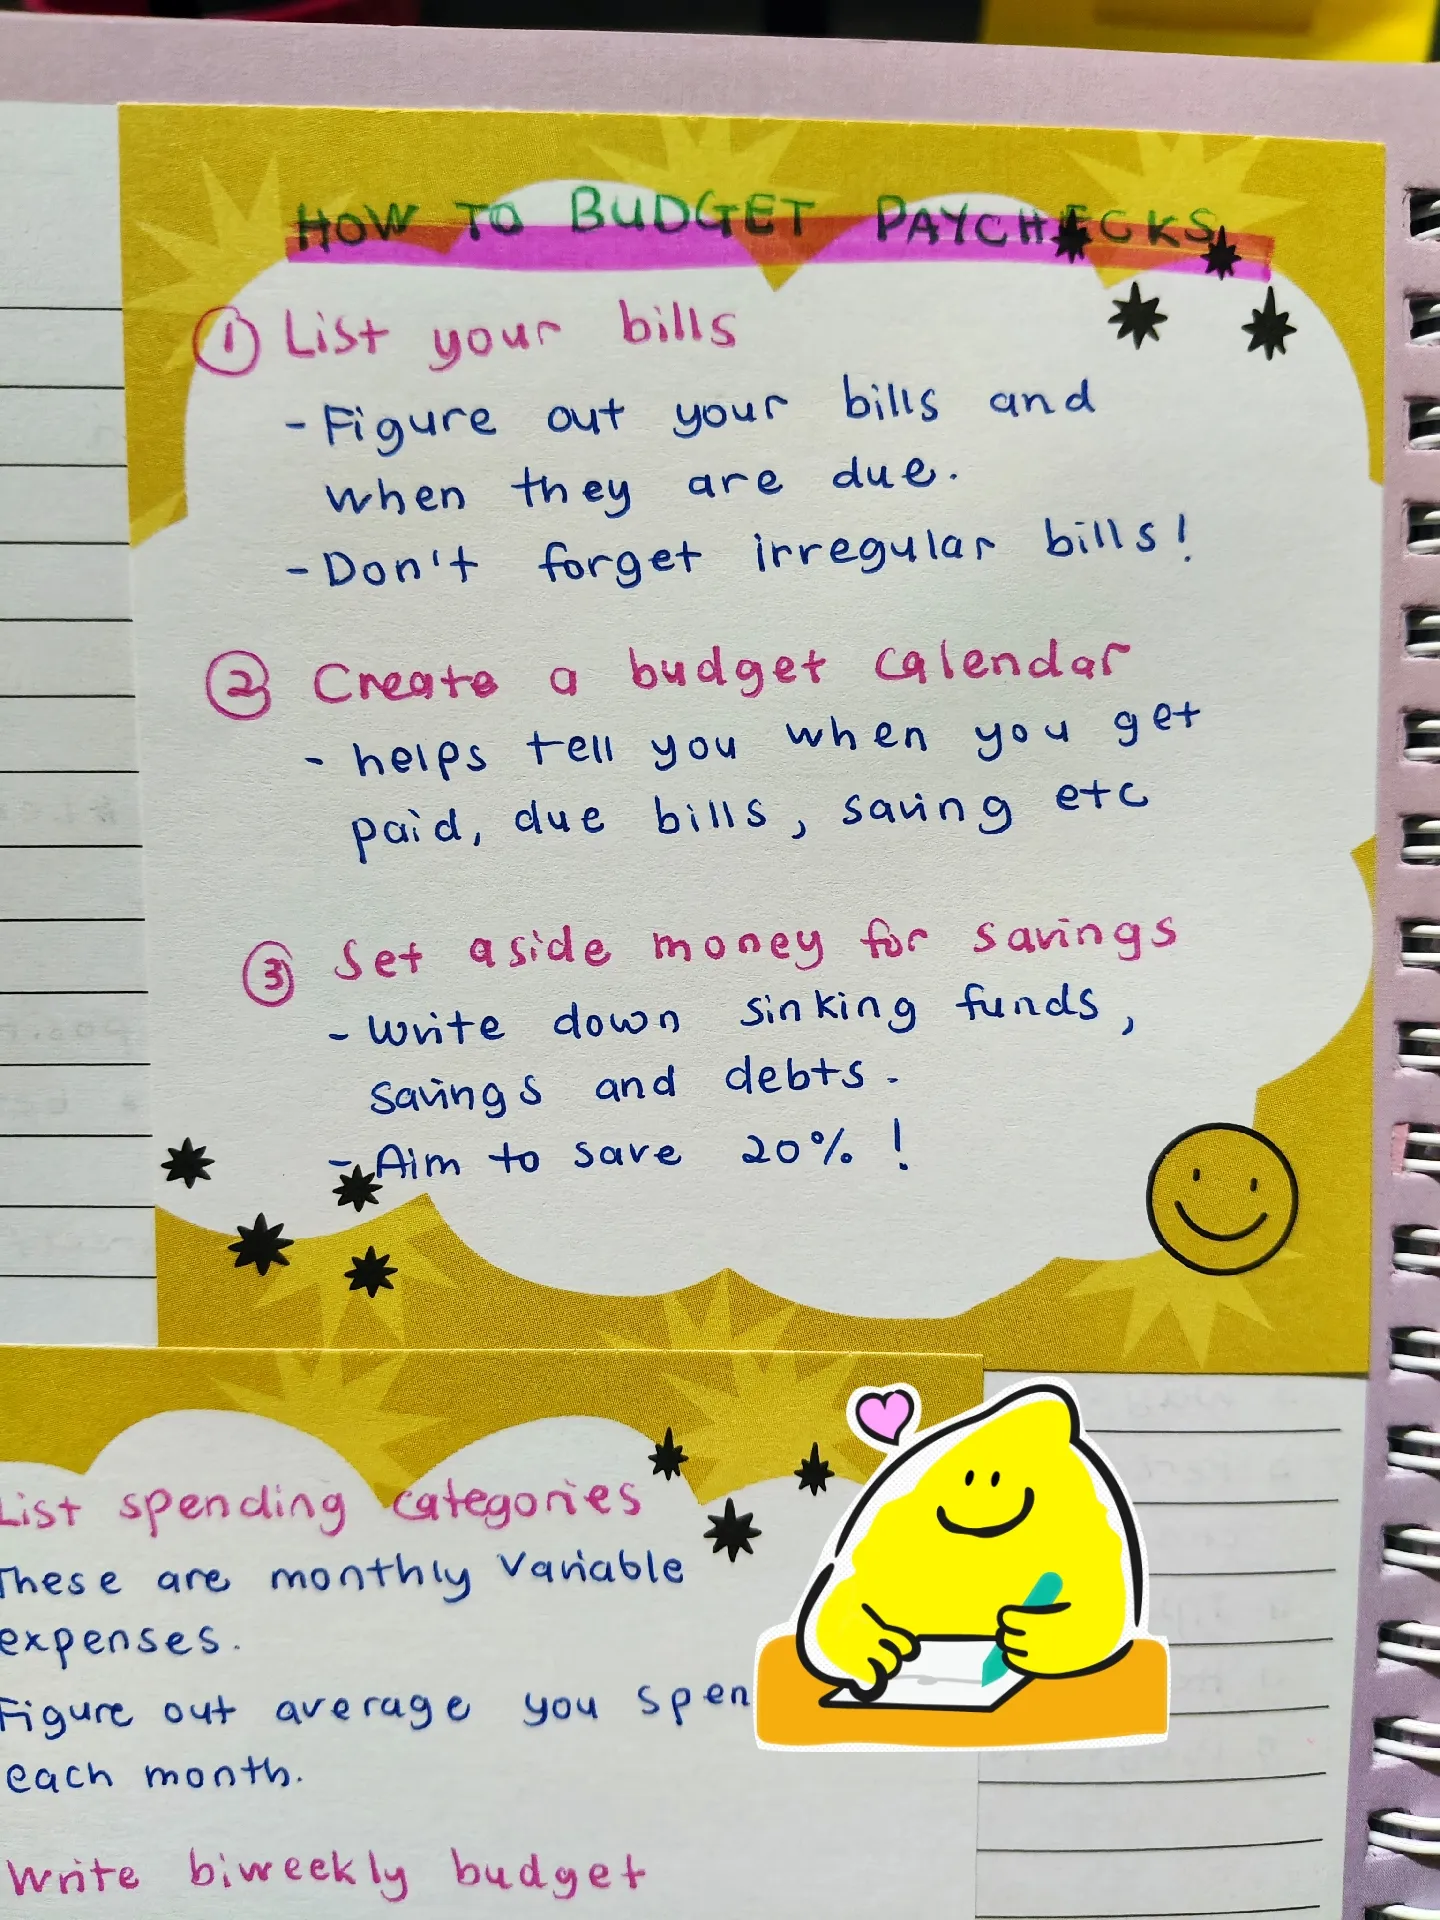 HOW TO BUDGET PAYCHECKS
① List your bills
- Figure out your bills and
when they are due.
- Don't forget irregular bills!
② Create a budget calendar
- helps tell you when you get
paid, due bills, saving etc
③ Set aside money for savings
- Write down sinking funds,
savings and debts.
- Aim to save 20% !
List spending categories
These are monthly variable
expenses.
Figure out average you spen
each month.
Write biweekly budget